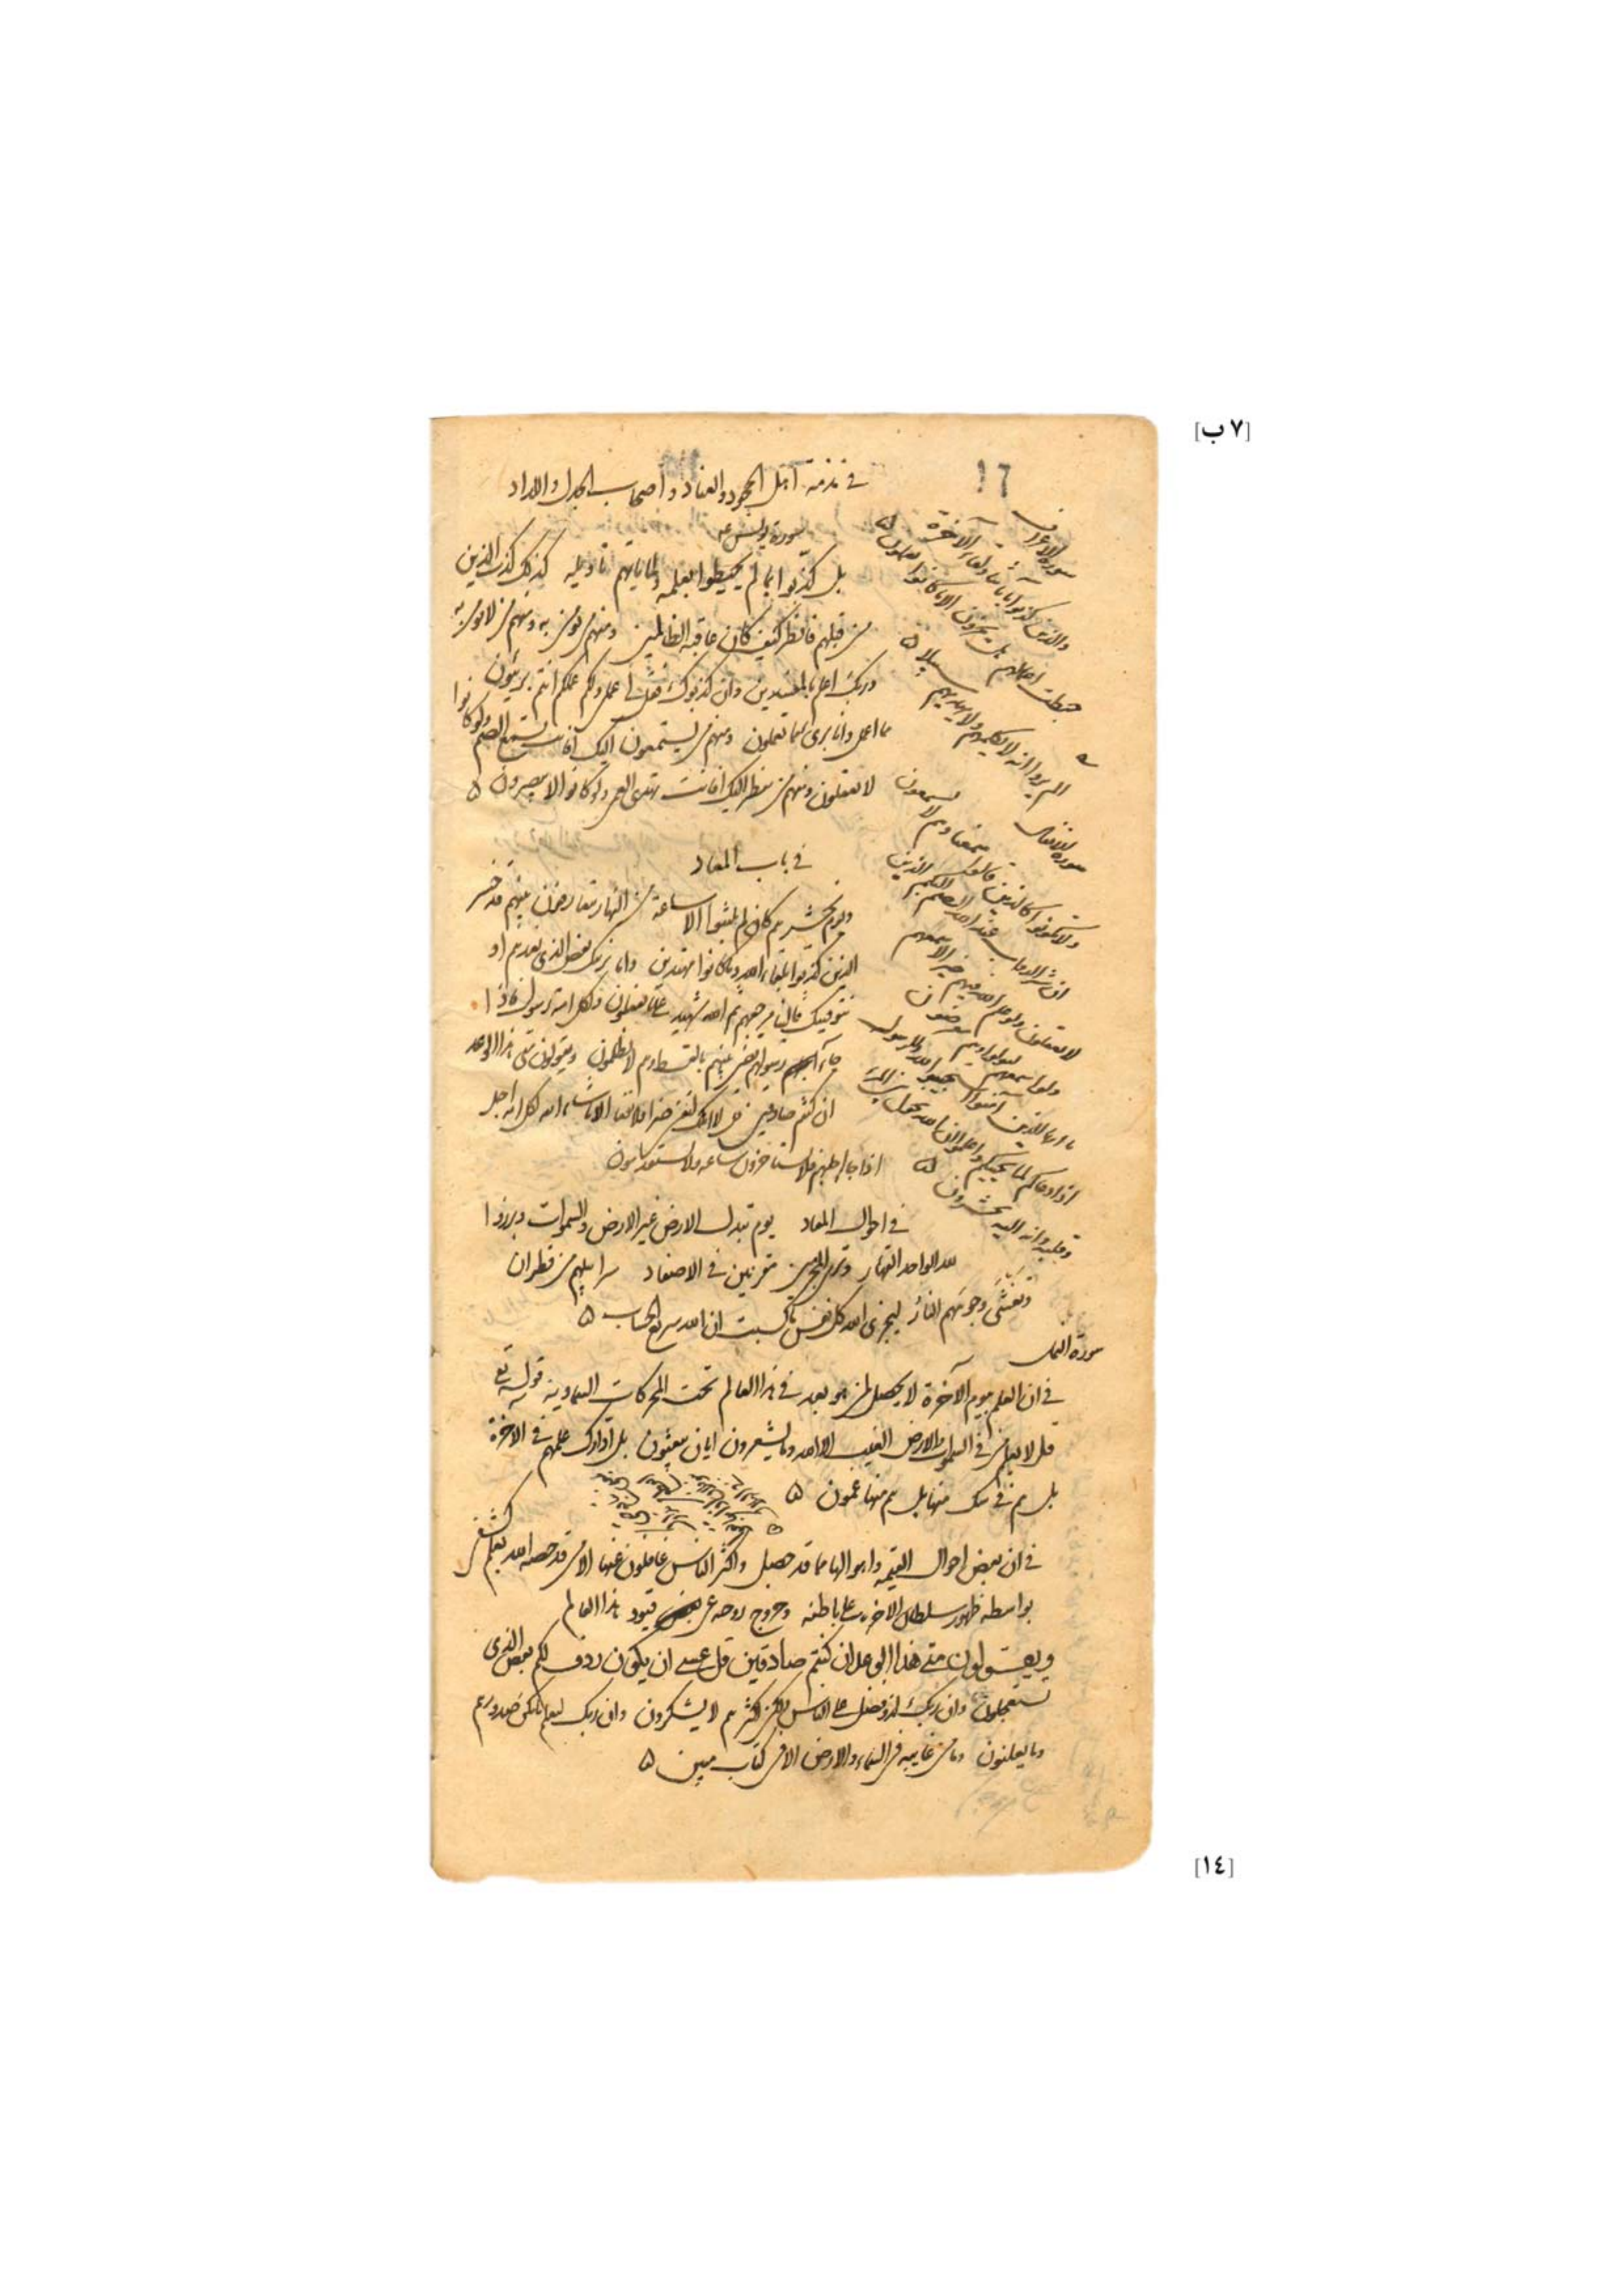 [٧ ب]
١٦
في مذمة اهل الجحود والعناد واصحاب الجدل واللداد
سورة يونس
بل كذبوا بما لم يحيطوا بعلمه ولما ياتهم تاويله كذلك كذب الذين
من قبلهم فانظر كيف كان عاقبة الظالمين ومنهم من يومن به ومنهم من لا يومن به
وربك اعلم بالمفسدين وان كذبوك فقل لي عملي ولكم عملكم انتم بريئون
مما اعمل وانا برئ مما تعملون ومنهم من يستمعون اليك افانت تسمع الصم ولو كانوا
لا يعقلون ومنهم من ينظر اليك افانت تهدي العمي ولو كانوا لا يبصرون ه
في باب المعاد
ويوم نحشرهم كان لم يلبثوا الا ساعة من النهار يتعارفون بينهم قد خسر
الذين كذبوا بلقاء الله وما كانوا مهتدين واما نرينك بعض الذي نعدهم او
نتوفينك فالينا مرجعهم ثم الله شهيد على ما يفعلون ولكل امة رسول فاذا
جاء رسولهم قضي بينهم بالقسط وهم لا يظلمون ويقولون متى هذا الوعد
ان كنتم صادقين قل لا املك لنفسي ضرا ولا نفعا الا ما شاء الله لكل امة اجل
اذا جاء اجلهم فلا يستاخرون ساعة ولا يستقدمون
في احوال المعاد يوم تبدل الارض غير الارض والسموات وبرزوا
لله الواحد القهار وترى المجرمين مقرنين في الاصفاد سرابيلهم من قطران
وتغشى وجوههم النار ليجزي الله كل نفس ما كسبت ان الله سريع الحساب ه
سورة النمل
في ان العلم بيوم الآخرة لا يحصل لمن هو بعد في هذا العالم تحت المحركات السماوية قوله تع
قل لا يعلم من في السموات والارض الغيب الا الله وما يشعرون ايان يبعثون بل ادارك علمهم في الاخرة
بل هم في شك منها بل هم منها عمون ه
في ان بعض احوال القيمة واهوالها مما قد حصل واكثر الناس غافلون عنها الا من قد خصه الله بعلم كشفي
بواسطة ظهور سلطان الاخرة على باطنه وخروج روحه عن بعض قيود هذا العالم
ويقولون متى هذا الوعد ان كنتم صادقين قل عسى ان يكون ردف لكم بعض الذي
تستعجلون وان ربك لذو فضل على الناس ولكن اكثرهم لا يشكرون وان ربك ليعلم ما تكن صدورهم
وما يعلنون وما من غايبة في السماء والارض الا في كتاب مبين ه
سورة الاعراف
والذين كذبوا باياتنا ولقاء الآخرة
حبطت اعمالهم هل يجزون الا ما كانوا يعملون ه
الم يروا انه لا يكلمهم ولا يهديهم سبيلا ه
سورة الانفال
ولا تكونوا كالذين قالوا سمعنا وهم لا يسمعون
ان شر الدواب عند الله الصم البكم الذين
لا يعقلون ولو علم الله فيهم خيرا لاسمعهم
ولو اسمعهم لتولوا وهم معرضون
يا ايها الذين آمنوا استجيبوا لله وللرسول
اذا دعاكم لما يحييكم واعلموا ان الله يحول بين المرء
وقلبه وانه اليه تحشرون ه
[١٤]